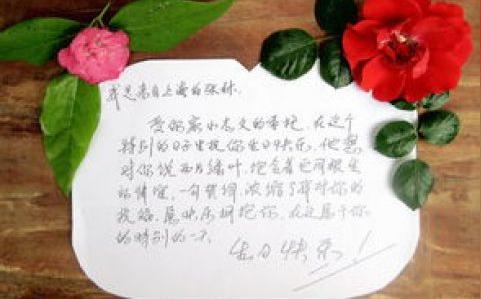 我是来自上海的张称.
受你家小志文的委托, 在这个
特别的日子里祝你生日快乐. 他想
对你说: 一片绿叶, 饱含着它对根生
的情谊, 一句贺词, 浓缩了我对你的
祝福. 愿快乐拥抱你, 在这属于你
的特别的一天.
生日快乐!